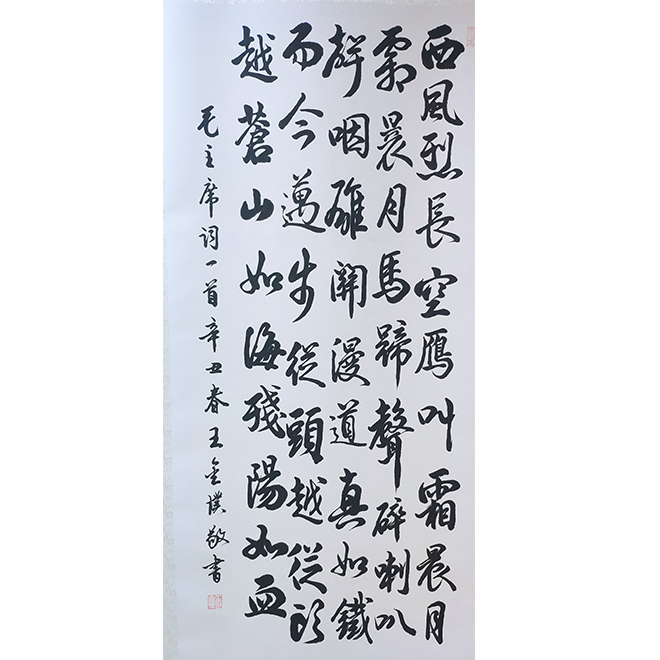 西風烈長空鴈叫霜晨月
霜晨月馬蹄聲碎喇叭
聲咽雄關漫道真如鐵
而今邁步從頭越從頭
越蒼山如海殘陽如血
毛主席词一首辛丑春王金敬書